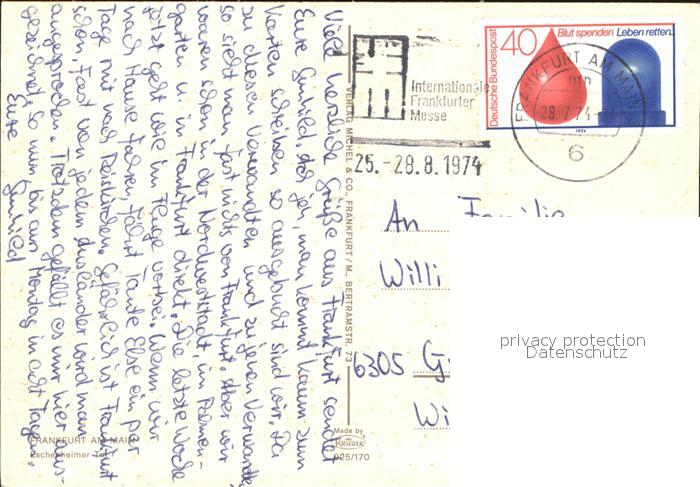 Viele herzliche Grüße aus Frankfurt sendet
Eure Gunhild. Ach ja, man kommt kaum zum
Karten schreiben so ausgebucht sind wir. Da
zu diesen Verwandten und zu jenen Verwandten,
so sieht man fast nichts von Frankfurt. Aber wir
waren schon in der Nordweststadt, im Palmen-
garten u. in Frankfurt direkt. Die letzte Woche
jetzt geht wie im Fluge vorbei. Wenn wir
nach Hause fahren, fährt Tante Else ein paar
Tage mit nach Reiskirchen. Gefährlich ist Frankfurt
schon, fast von jedem Ausländer wird man
angesprochen. Trotzdem gefällt es mir hier aus-
gezeichnet. So nun bis am Montag in acht Tagen.
Eure
Gunhild
FRANKFURT AM MAIN
Eschenheimer
VERLAG MICHEL & CO., FRANKFURT/M., BERTRAMSTR. 73
Made by
KRÜGER
925/170
Internationale
Frankfurter
Messe
25.-28.8.1974
Deutsche Bundespost
40
Blut spenden Leben retten.
1974
FRANKFURT AM MAIN
28.7.74
6
An Familie
Willi
6305 G
Wi
privacy protection
Datenschutz